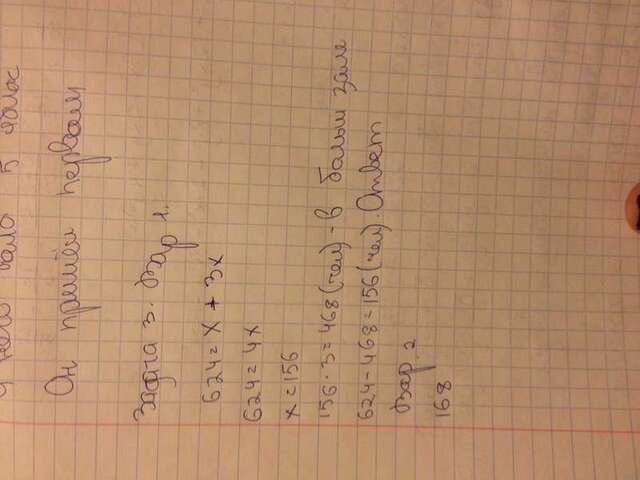 У него было 5 фолос
Он пришёл первам
Задача 3. Вар 1.
624 = x + 3x
624 = 4x
x = 156
156 · 3 = 468 (чел) - в больш зале
624 - 468 = 156 (чел). Ответ
Вар. 2
168